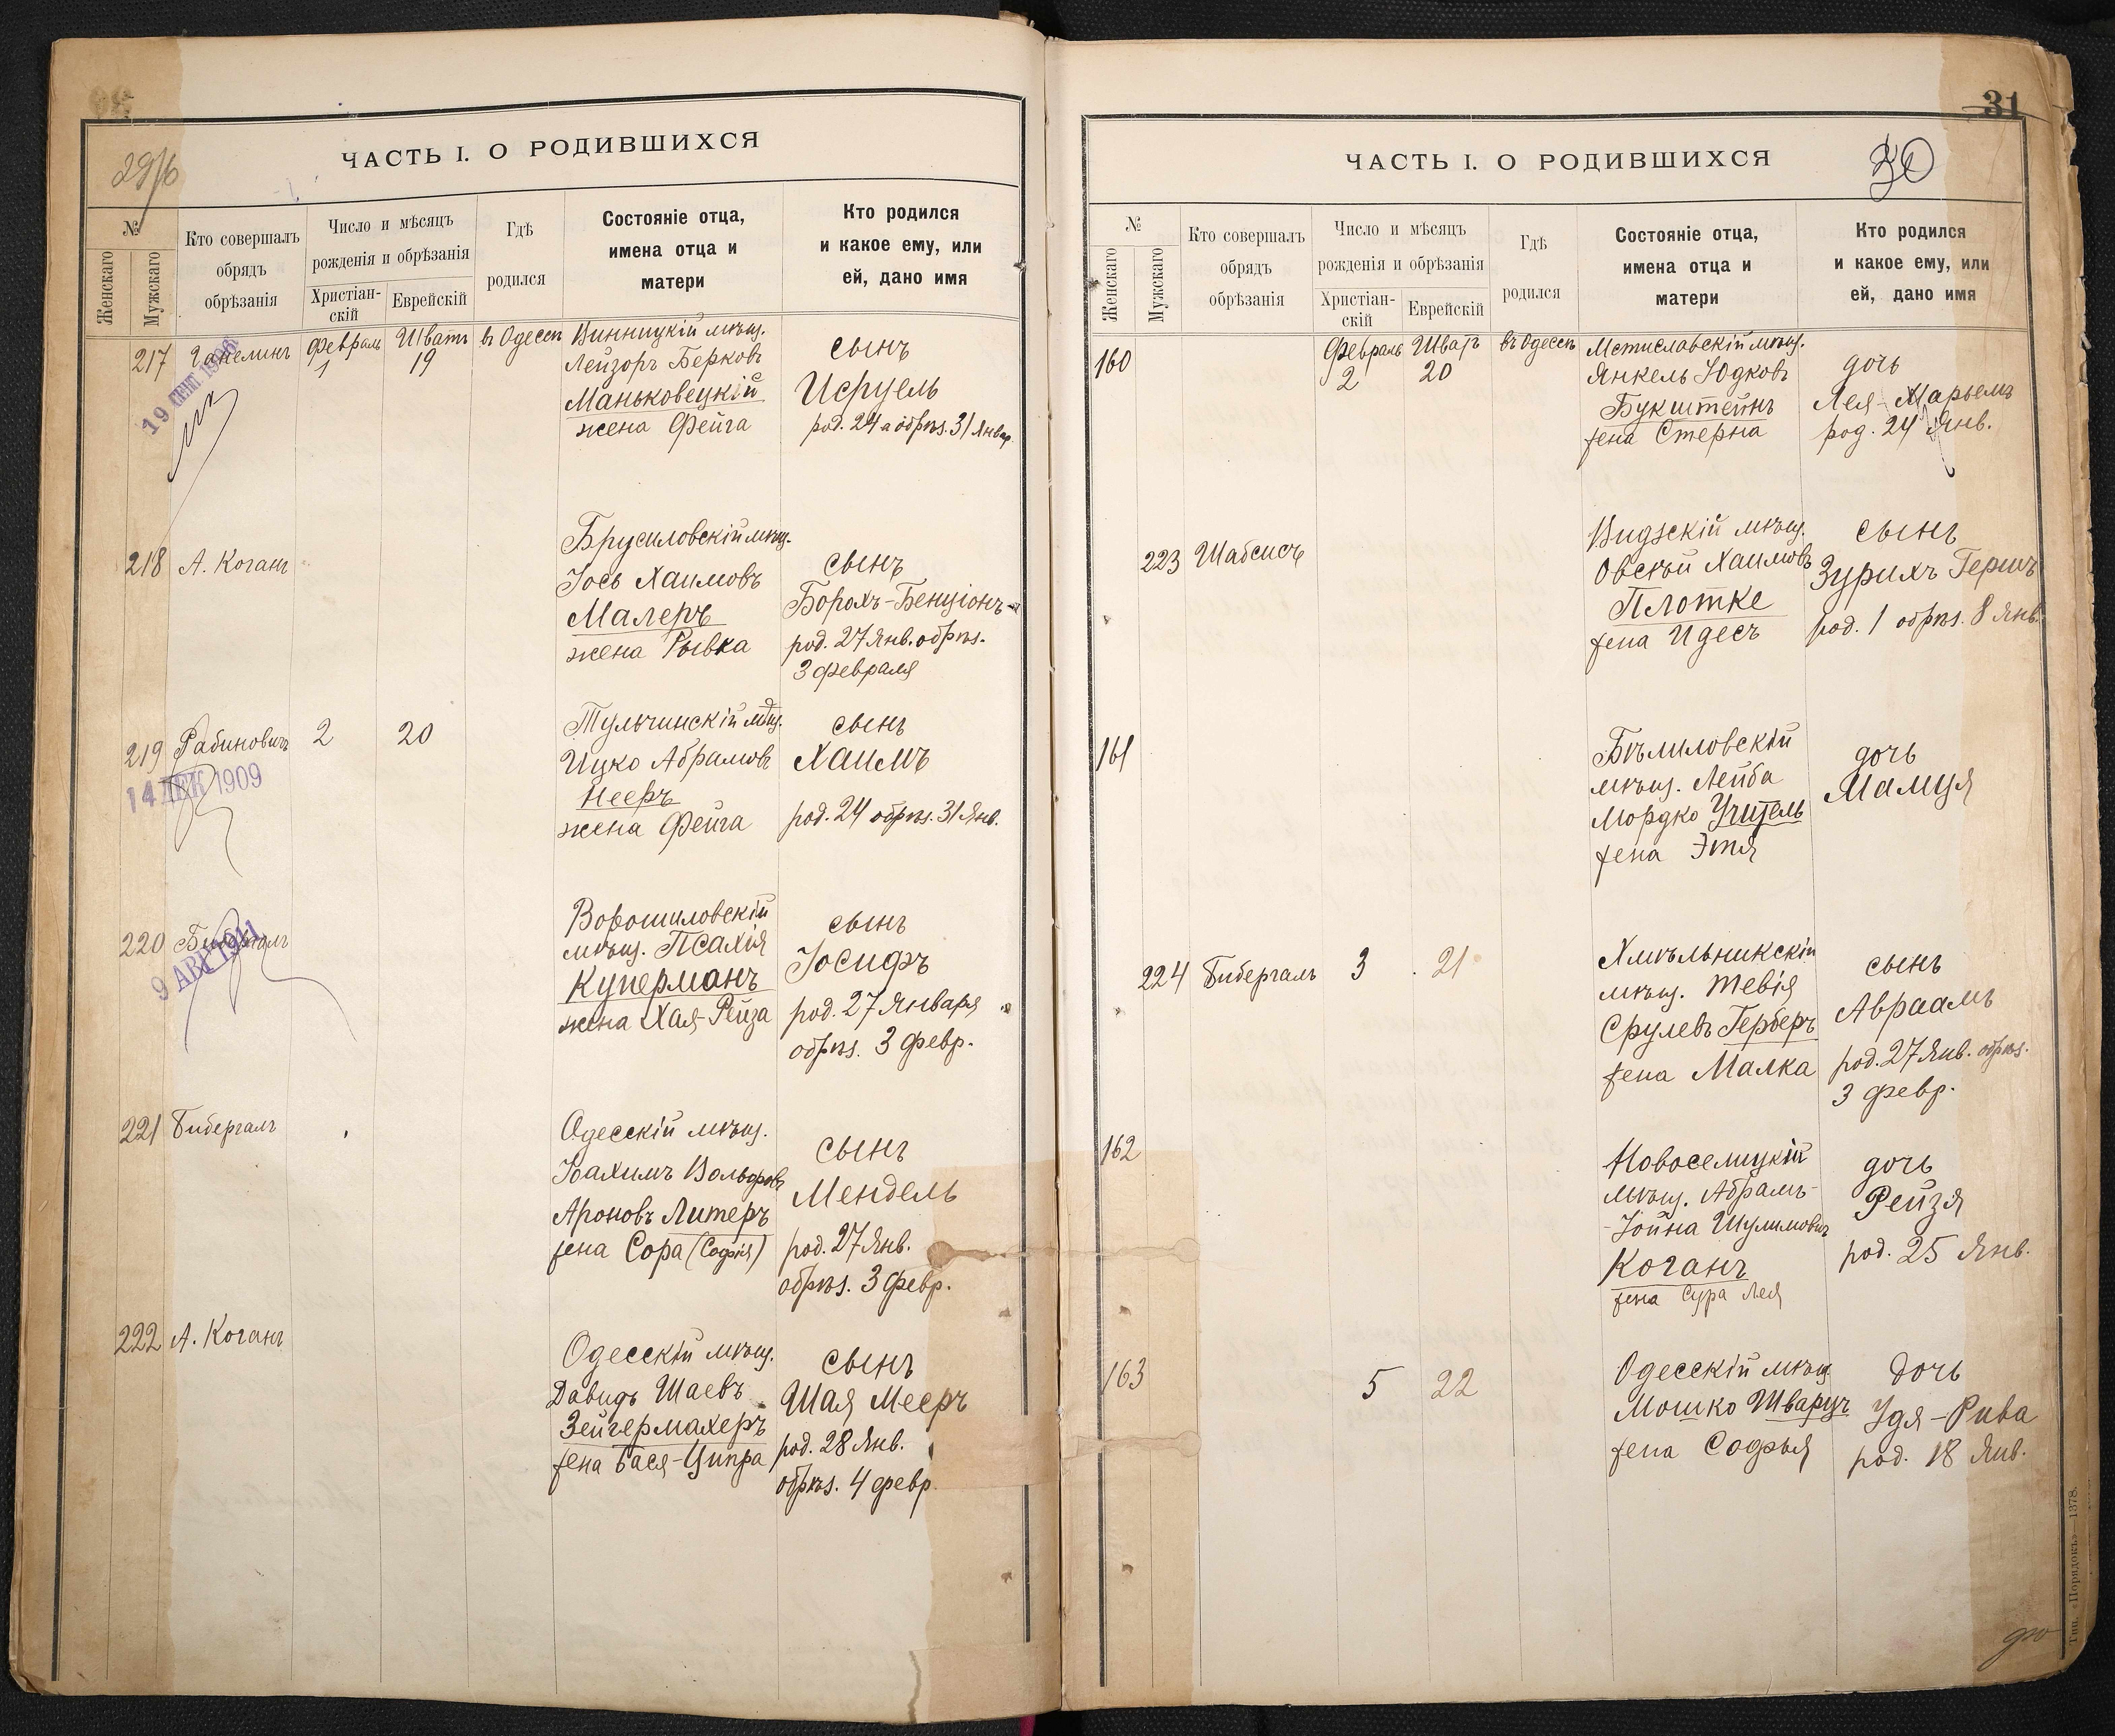 ЧАСТЬ I. О РОДИВШИХСЯ
№
Женскаго
Мужскаго
Кто совершалъ
обрядъ
обрѣзанія
Число и мѣсяцъ
рожденія и обрѣзанія
Христіан-
скій
Еврейскій
Гдѣ
родился
Состояніе отца,
имена отца и
матери
Кто родился
и какое ему, или
ей, дано имя
217
19 СЕНТ
Февраль
1
Шватъ
19
въ Одессѣ
Винницкій мѣщ.
Лейзоръ Берковъ
Маньковецкій
жена Фейга
сынъ
Исруель
род. 24 а обрѣз. 31 Январ
218
А. Коганъ
Брусиловскій мѣщ.
Іось Хаимовъ
Малеръ
жена Рывка
сынъ
Борохъ-Бенціонъ
род. 27 Янв. обрѣз.
3 февраля
219
Рабиновичъ
14 ДЕК 1909
2
20
Тульчинскій мѣщ.
Ицко Абрамовъ
Нееръ
жена Фейга
сынъ
Хаимъ
род. 24 обрѣз. 31 Янв.
220
Бибергалъ
9 АВГ 1911
Ворошиловскій
мѣщ. Псахія
Куперманъ
жена Хая-Рейза
сынъ
Іосифъ
род. 27 Января
обрѣз. 3 февр.
221
Бибергалъ
Одесскій мѣщ.
Іоахимъ Вольфовъ
Ароновъ Литеръ
жена Сора (Софія)
сынъ
Мендель
род. 27 Янв.
обрѣз. 3 февр.
222
А. Коганъ
Одесскій мѣщ.
Давидъ Шаевъ
Зейгермахеръ
жена Бася-Ципра
сынъ
Шая Мееръ
род. 28 Янв.
обрѣз. 4 февр.
31
ЧАСТЬ I. О РОДИВШИХСЯ
30
№
Женскаго
Мужскаго
Кто совершалъ
обрядъ
обрѣзанія
Число и мѣсяцъ
рожденія и обрѣзанія
Христіан-
скій
Еврейскій
Гдѣ
родился
Состояніе отца,
имена отца и
матери
Кто родился
и какое ему, или
ей, дано имя
160
Февраль
2
Шватъ
20
въ Одессѣ
Мстиславскій мѣщ.
Янкель Юдковъ
Букштейнъ
жена Стерна
дочь
Лея-Марьемъ
род. 24 Янв.
223
Шабсисъ
Видзскій мѣщ.
Овсѣй Хаимовъ
Плотке
жена Идесъ
сынъ
Зурихъ Гершъ
род. 1 обрѣз. 8 Янв.
161
Бѣлиловскій
мѣщ. Лейба
Мордко Учитель
жена Этя
дочь
Мамця
224
Бибергалъ
3
21
Хмѣльникскій
мѣщ. Тевія
Срулевъ Герберъ
жена Малка
сынъ
Авраамъ
род. 27 Янв. обрѣз.
3 февр.
162
Новоселицкій
мѣщ. Абрамъ-
-Іойна Шулимовичъ
Коганъ
жена Сура Лея
дочь
Рейзя
род. 25 Янв.
163
5
22
Одесскій мѣщ.
Мошко Шварцъ
жена Софья
дочь
Удя-Рива
род. 18 Янв.
Тип. «Порядокъ»—1378.